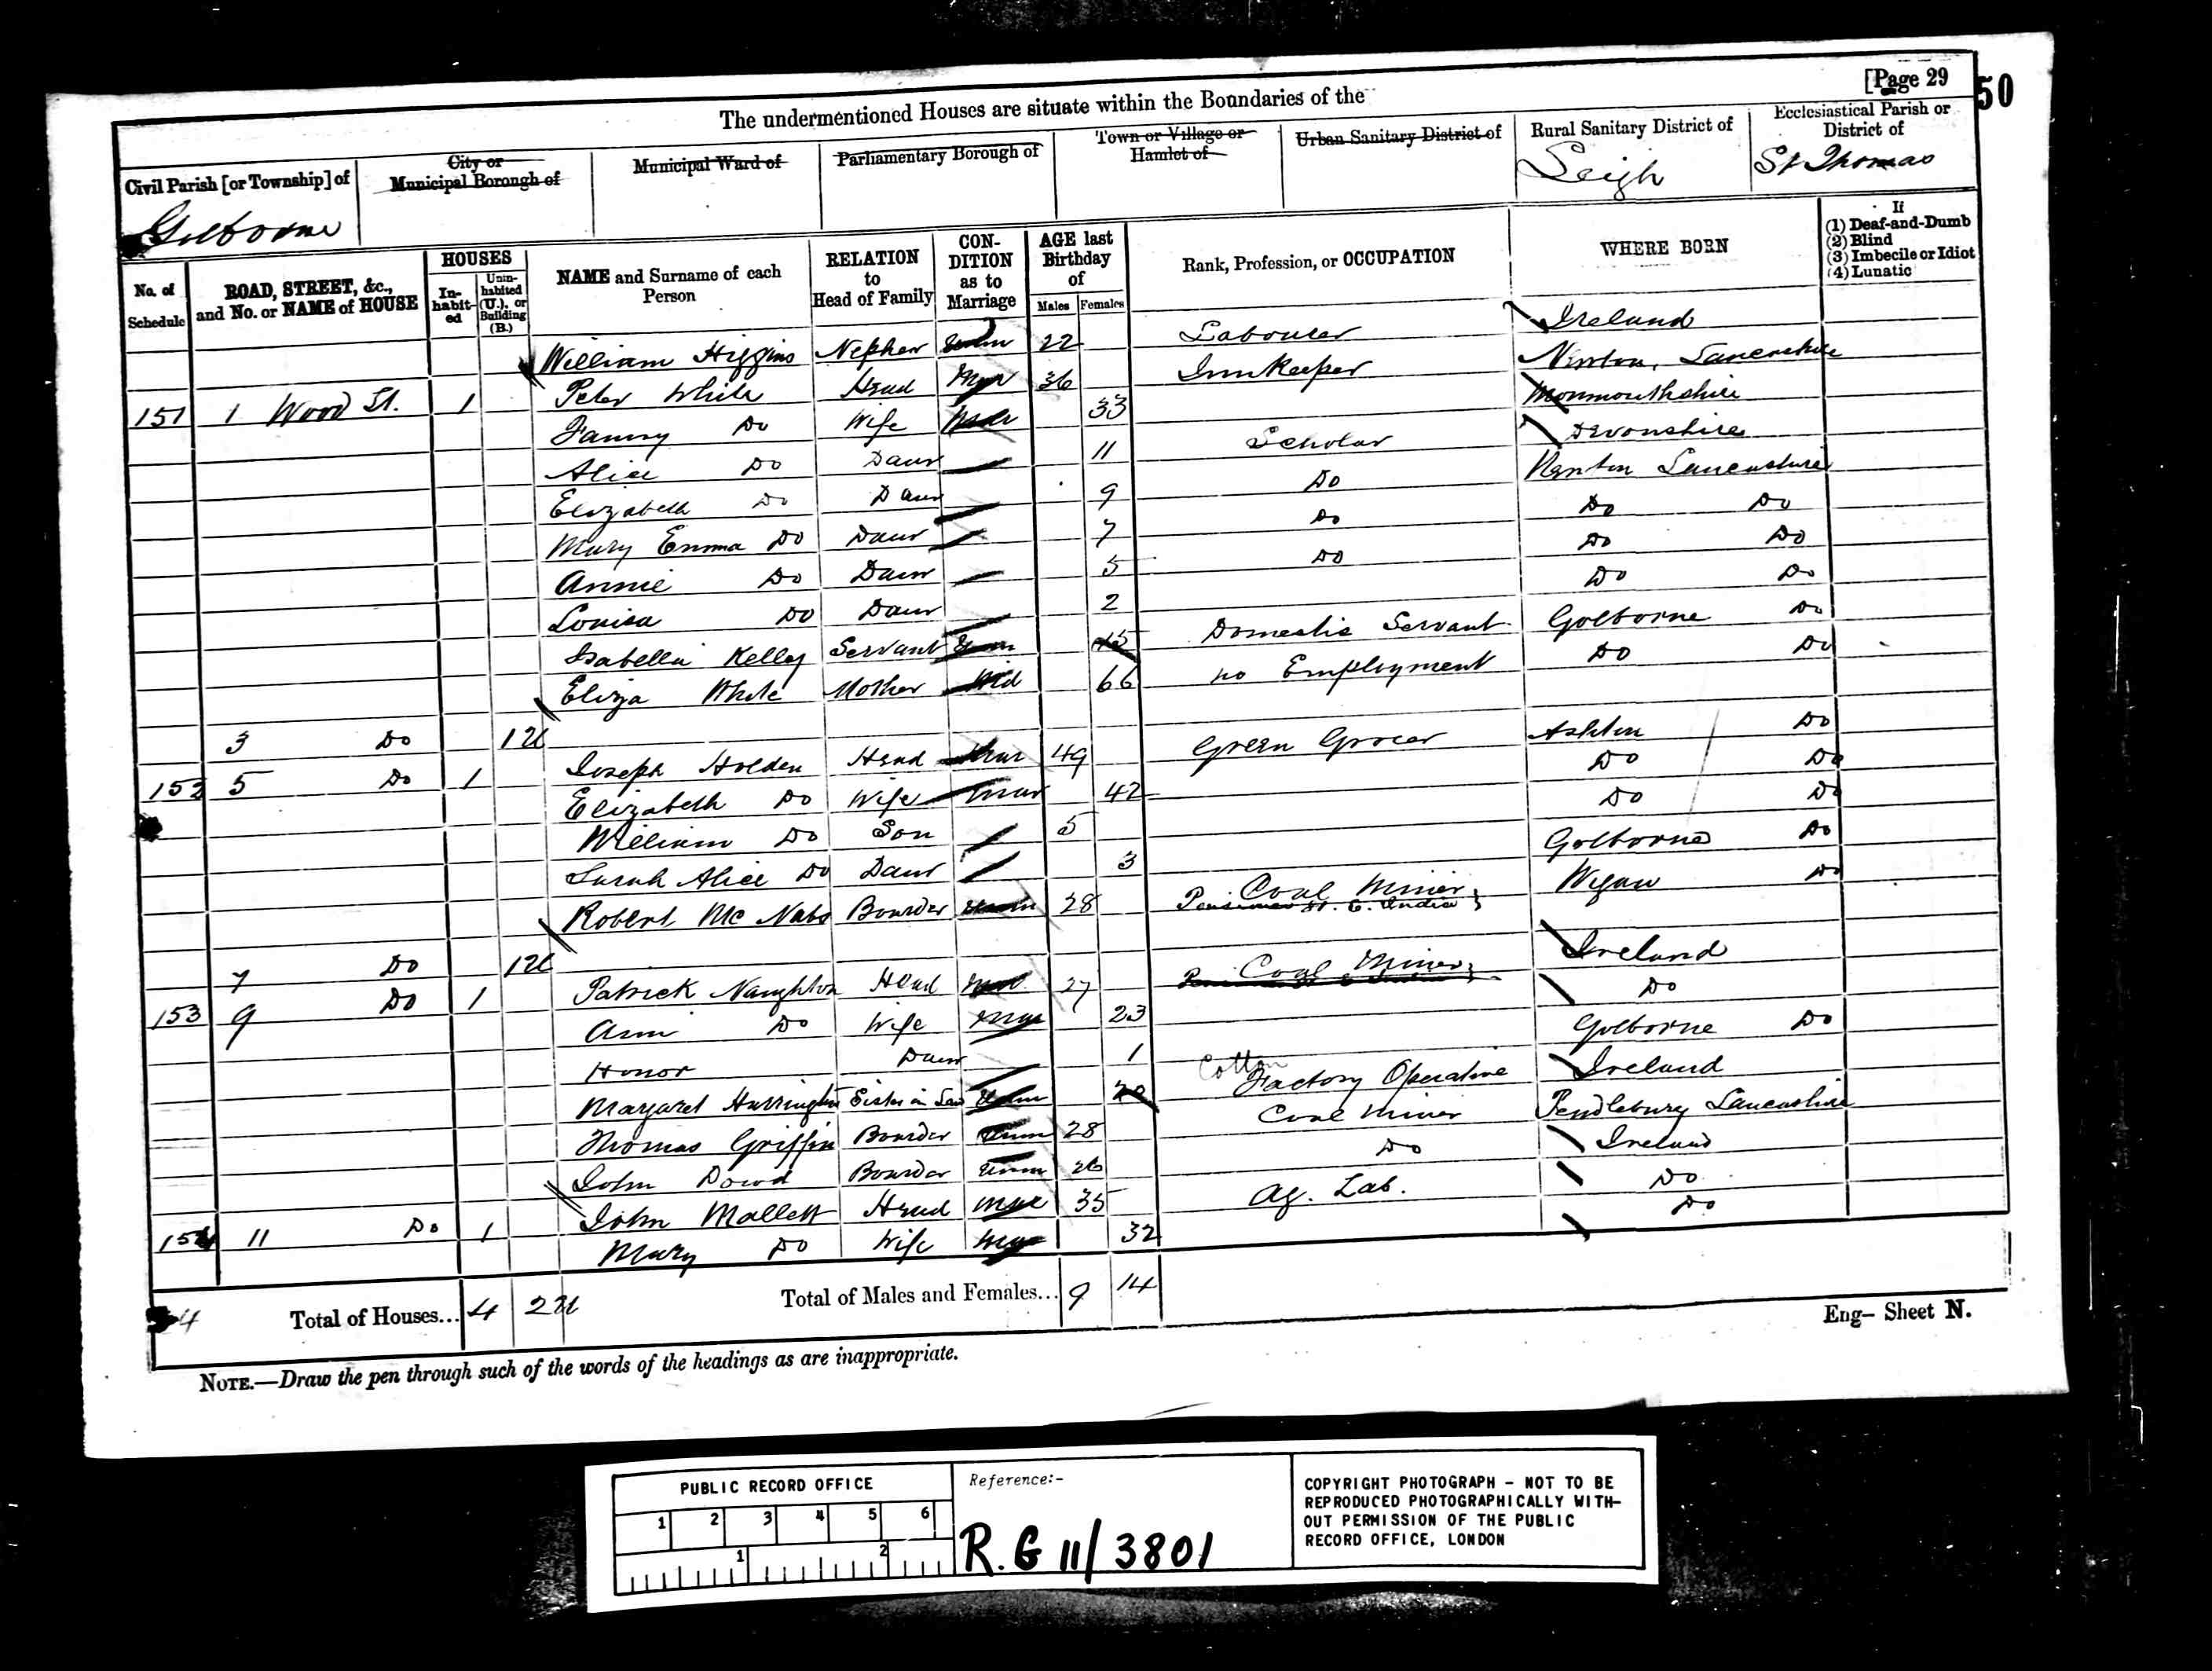 [Page 29
50
The undermentioned Houses are situate within the Boundaries of the
Civil Parish [or Township] of
Golborne
City or Municipal Borough of
Municipal Ward of
Parliamentary Borough of
Town or Village or Hamlet of
Urban Sanitary District of
Rural Sanitary District of
Leigh
Ecclesiastical Parish or District of
St Thomas
No. of Schedule
ROAD, STREET, &c., and No. or NAME of HOUSE
HOUSES
In-habit-ed
Unin-habited (U.), or Building (B.)
NAME and Surname of each Person
RELATION to Head of Family
CON-DITION as to Marriage
AGE last Birthday of
Males
Females
Rank, Profession, or OCCUPATION
WHERE BORN
If
(1) Deaf-and-Dumb
(2) Blind
(3) Imbecile or Idiot
(4) Lunatic
William Higgins Nephew Unm 22 Labourer Ireland
151 1 Wood St. 1 Peter White Head Mar 36 Innkeeper Newton, Lancashire
Fanny Do Wife Mar 33 Monmouthshire
Alice Do Daur 11 Scholar Devonshire
Elizabeth Do Daur 9 Do Newton Lancashire
Mary Emma Do Daur 7 Do Do Do
Annie Do Daur 5 Do Do Do
Louisa Do Daur 2 Do Do
Isabella Kelley Servant Unm 15 Domestic Servant Golborne Do
Eliza White Mother Wid 66 no Employment Do Do
3 Do 1U
152 5 Do 1 Joseph Holden Head Mar 49 Green Grocer Ashton Do
Elizabeth Do Wife Mar 42 Do Do
William Do Son 5 Do Do
Sarah Alice Do Daur 3 Golborne Do
Robert Mc Nabs Boarder Unm 28 Coal Miner; Wigan Do
7 Do 1U
153 9 Do 1 Patrick Naughton Head Mar 27 Coal Miner; Ireland
Ann Do Wife Mar 23 Do
Honor Daur 1 Golborne Do
Margaret Harrington Sister in Law Unm 20 Cotton Factory Operative Ireland
Thomas Griffin Boarder Unm 28 Coal Miner Pendlebury Lancashire
John Dowd Boarder Unm 26 Do Ireland
154 11 Do 1 John Mallett Head Mar 35 Ag. Lab. Do
Mary Do Wife Mar 32 Do
4 Total of Houses... 4 2U
Total of Males and Females... 9 14
Eng— Sheet N.
NOTE.—Draw the pen through such of the words of the headings as are inappropriate.
PUBLIC RECORD OFFICE
1 2 3 4 5 6
1 2
Reference:-
R.G 11/3801
COPYRIGHT PHOTOGRAPH - NOT TO BE
REPRODUCED PHOTOGRAPHICALLY WITH-
OUT PERMISSION OF THE PUBLIC
RECORD OFFICE, LONDON